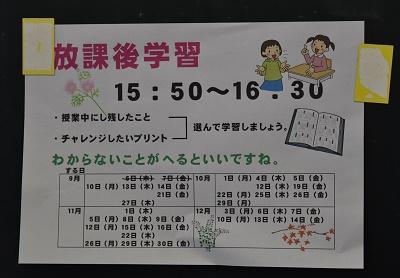 放課後学習
15：50～16：30
・授業中にし残したこと
・チャレンジしたいプリント
選んで学習しましょう。
わからないことがへるといいですね。
する日
9月 6日（木） 7日（金） 10月 1日（月） 4日（木） 5日（金）
10日（月） 13日（木） 14日（金） 12日（金）
21日（金） 22日（月） 25日（木） 26日（金）
27日（木） 29日（月）
11月 1日（木） 12月 3日（月） 6日（木） 7日（金）
5日（月） 8日（木） 9日（金） 10日（月） 13日（木） 14日（金）
12日（月） 15日（木） 16日（金）
22日（木）
26日（月） 29日（木） 30日（金）